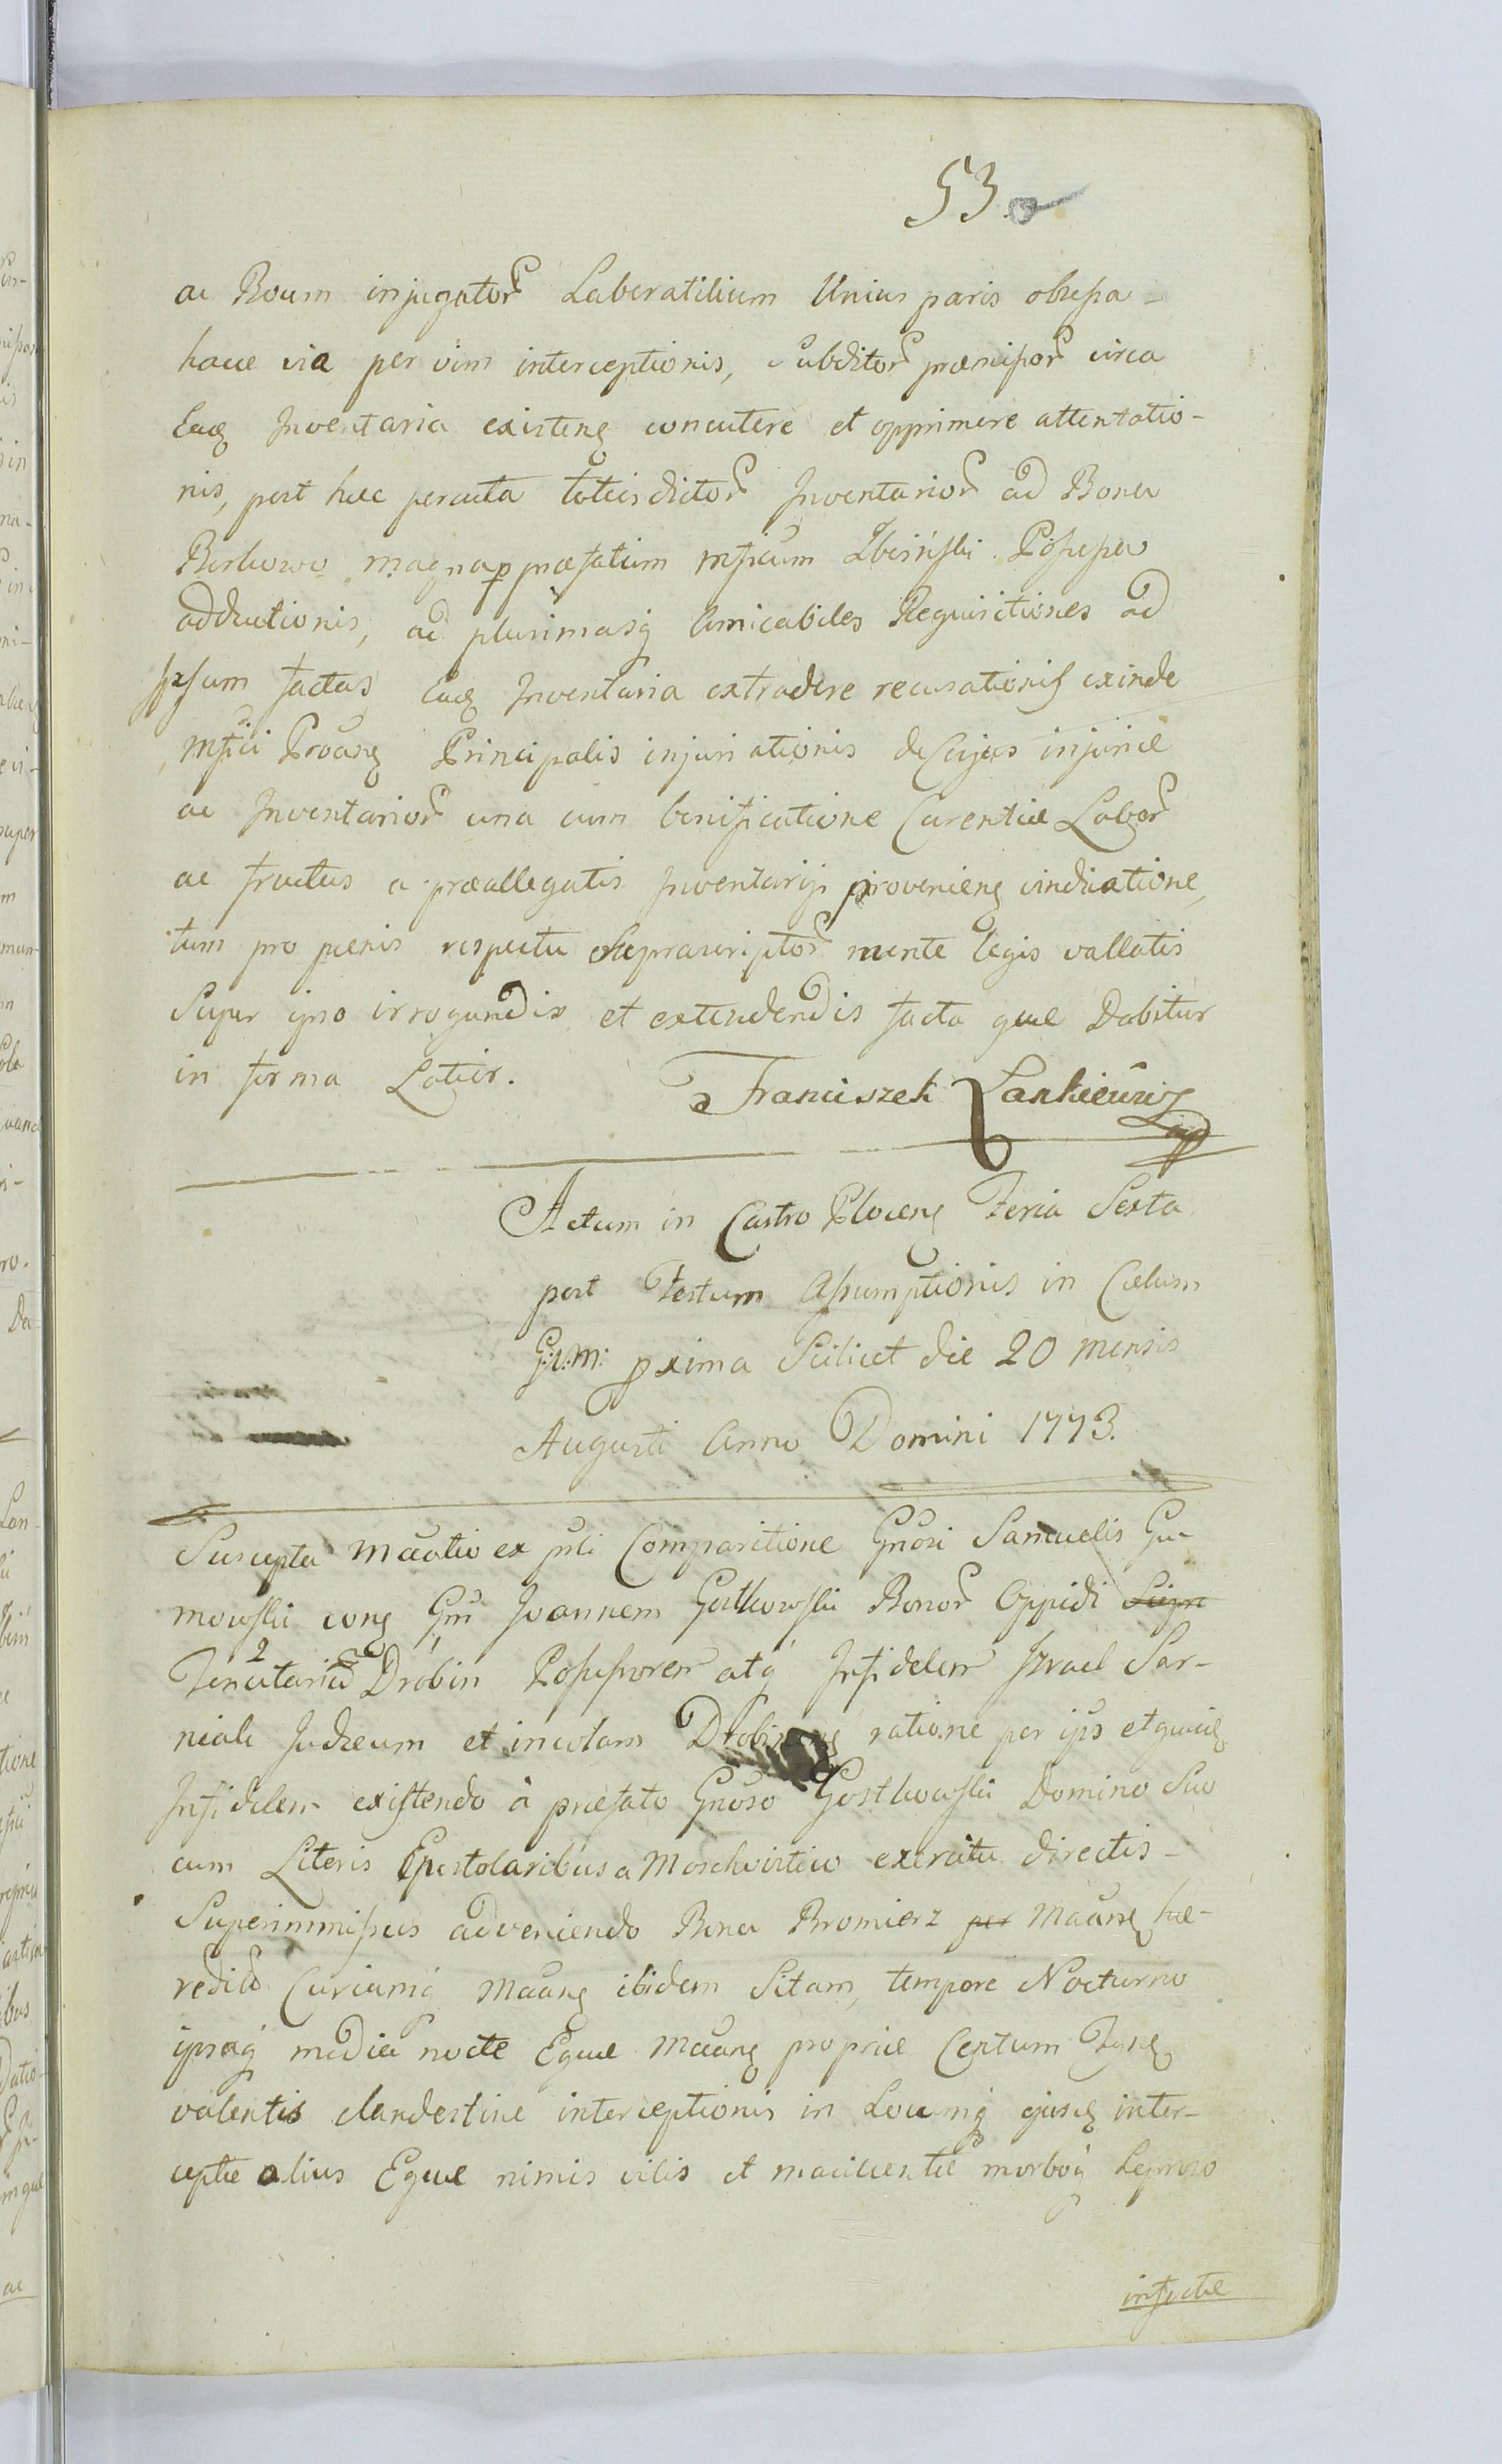 53
ac Boum injugator Laboratilium Unius paris obrepa-
hace via per vim interceptionis, Subditor præmissor circa
Eaq Inventaria existenq concutere et opprimere attentatio-
nis, post hæc peracta totiesdictor Inventarior ad Bona
magna p præfatum Mficum Zbiński Possessa
adductionis, ac plurimasq Amicabiles Requisitiones ad
Ipsum factas, Eaq Inventaria extradere recusationis exinde
Mfici Proãnq Principalis injuriationis de Cujus injuriæ
ac Inventarior una cum bonificatione Carentiæ Labor
ac fructus a præallegatis Inventarijs provenienq vindicatione,
tum pro pœnis respectu Suprascriptor mente legis vallatis
Super ipso irrogandis et extendendis facta quæ Dabitur
in forma Latior.
Franciszek Lankiewicz
Actum in Castro Plocenq Feria Sexta
post Festum Assumptionis in Cœlum
G:V:M: pxima Scilicet die 20 mensis
Augusti Anno Domini 1773.
Suscepta Mãatio ex pñti Comparitione Gñosi Samuelis Gu-
mowski conq Gñ Joannem Gostkowski Bonor Oppidi
2
Tenutariũ Drobin Possessorem atq Infidelem Izrael Sar-
niak Judæum et incolam Drobinenq ratione per ips etquidq
Infidelem existendo à præfato Gñoso Gostkowski Domino Suo
cum Literis Epistolaribus a Moschvitico exercitu directis
Superimmissus adveniendo Bona Bromierz per Mãanq hæ-
redita Curiamq Mãanq ibidem Sitam, tempore Nocturno
ipsaq media nocte Equæ Mãanq propriæ Centum Tynf
valentis clandestine interceptionis in Locumq ejusq inter-
ceptæ alius Equæ nimis vilis et macilentæ morboq Leproso
infectæ